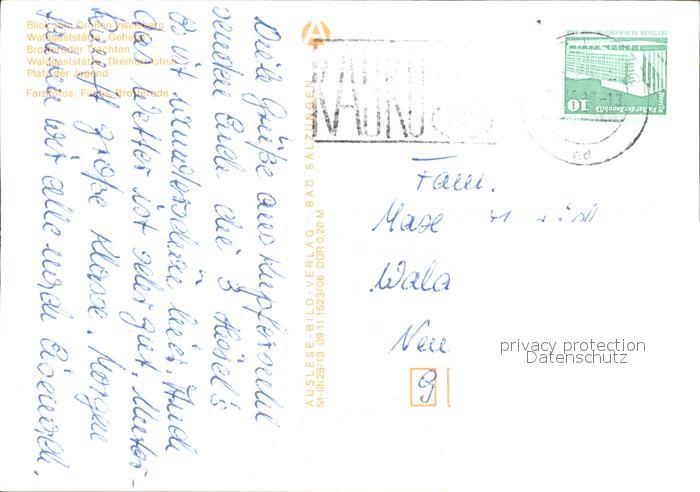 Blick zum Großen Inselsberg
Waldgaststätte „Gehege“
Brotteroder Trachten
Waldgaststätte „Dreiherrnstein“
Platz der Jugend
Farbfotos: Fuchs, Brotterode
Viele Grüße aus
senden Euch die 3
Es ist wunderschön hier. Auch
das Wetter ist sehr gut. Unter-
kunft große Klasse. Morgen
wir alle nach Eisenach.
AUSLESE-BILD-VERLAG BAD SALZUNGEN
St-III/26/13 09 11 1523/06 DDR 0,20 M
10
Berlin
Palast der Republik
ad
Fam.
Hase
Wala
Neu
9
privacy protection
Datenschutz